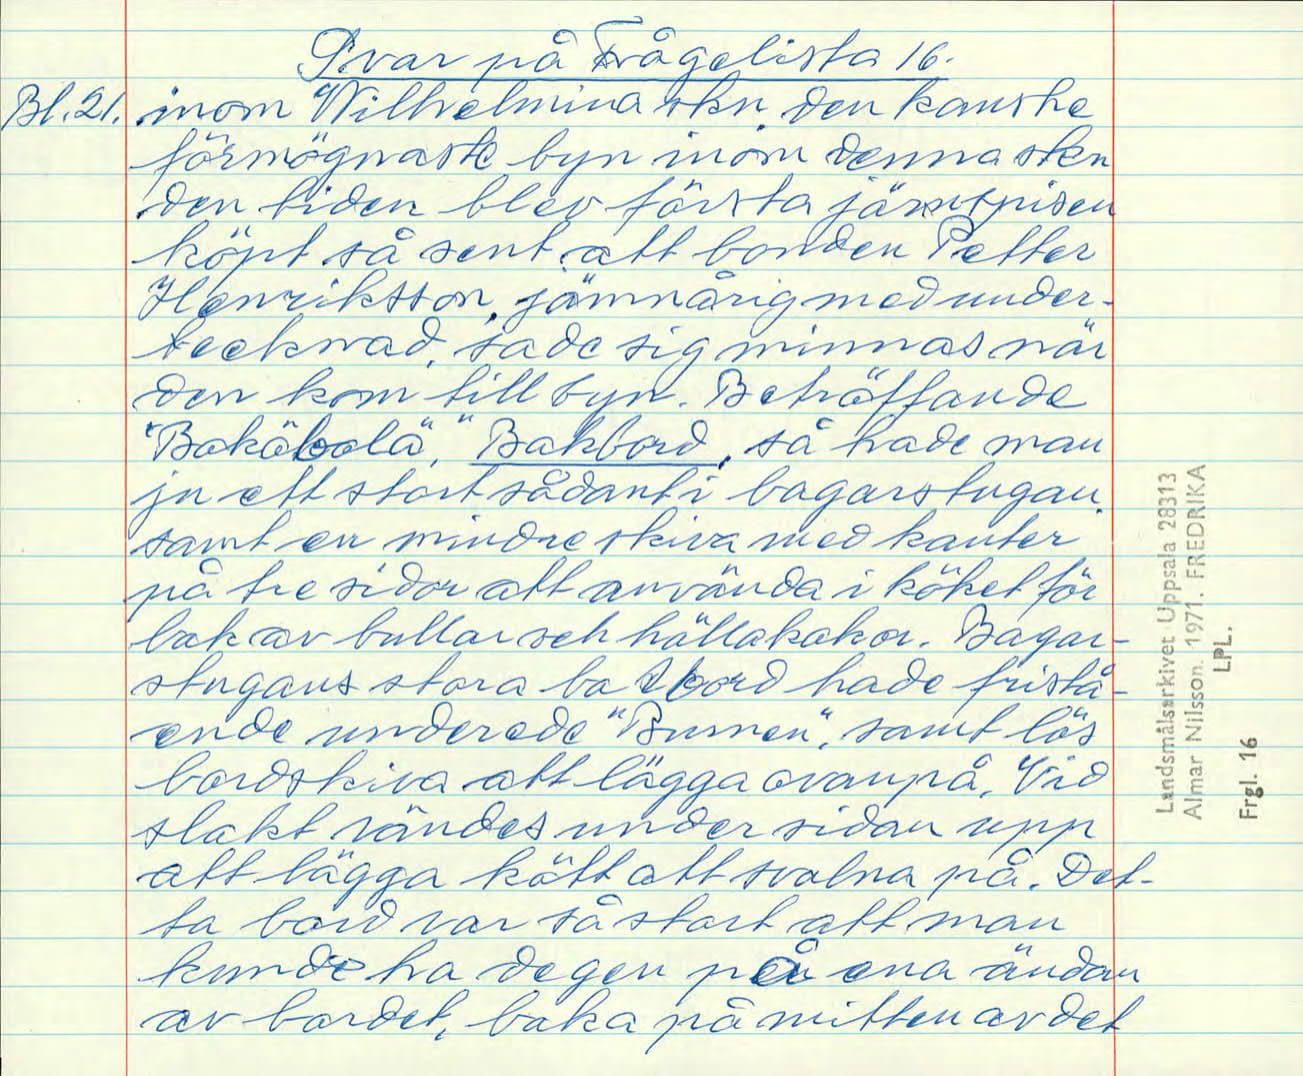 Svar på Frågelista 16.
Bl. 21. inom Wilhelmina skn. den kanske
förmögnaste byn inom denna skn
den tiden blev första järnspisen
köpt så sent, att bonden Petter
Henriksson, jämnårig med under-
tecknad, sade sig minnas när
den kom till byn. Beträffande
"Bakäbolä", "Bakbord, så hade man
ju ett stort sådant i bagarstugan,
samt en mindre skiva med kanter
på tre sidor att använda i köket för
bak av bullar och hällakakor. Bagar-
stugans stora bakbord hade fristå-
ende underede "Bunnen", samt lös
bordskiva att lägga ovanpå. Vid
slakt vändes under sidan upp
att lägga kött att svalna på. Det-
ta bord var så stort att man
kunde ha degen på ena ändan
av bordet, baka på mitten av det
Landsmålsarkivet Uppsala 28313
Almar Nilsson. 1971. FREDRIKA
LPL.
Frgl. 16